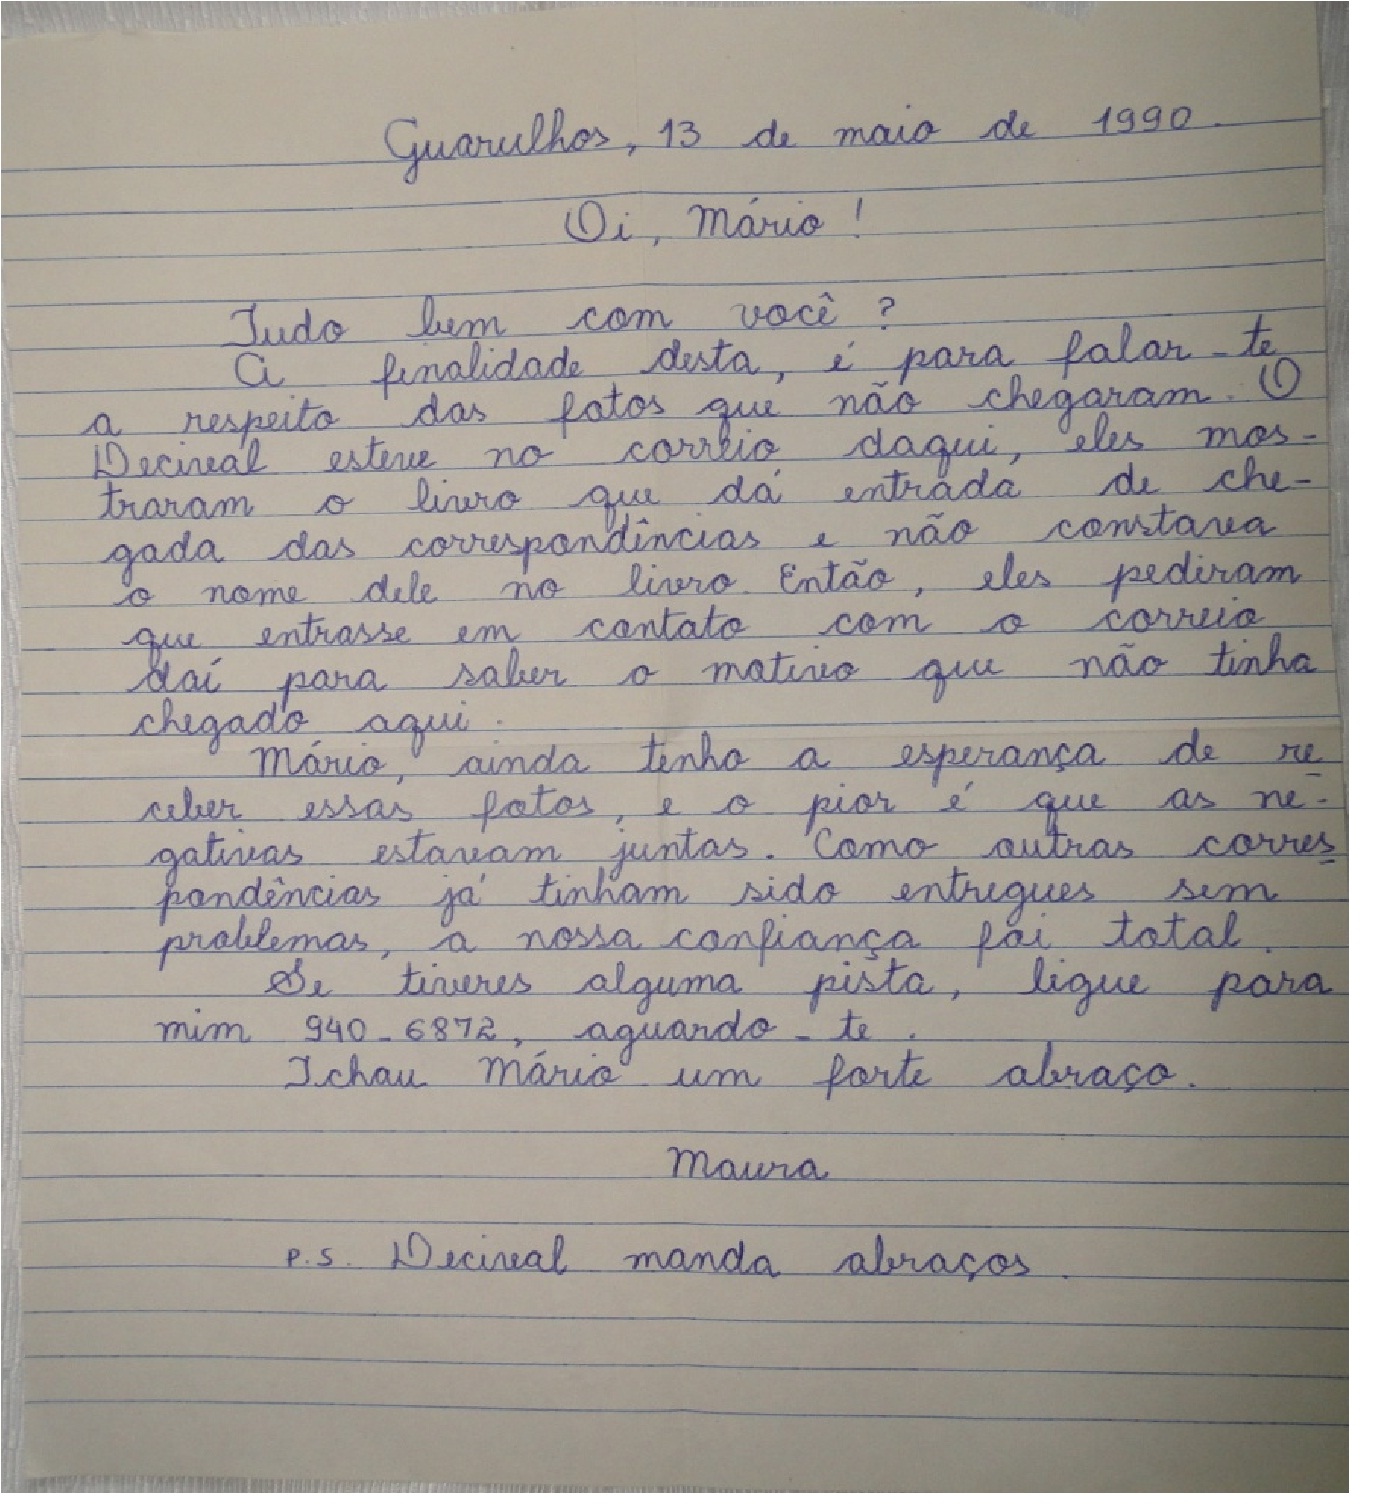 Guarulhos, 13 de maio de 1990.
Oi, Mário!
Tudo bem com você?
A finalidade desta, é para falar-te
a respeito das fotos que não chegaram. O
Decireal esteve no correio daqui, eles mos-
traram o livro que dá entrada de che-
gada das correspondências e não constava
o nome dele no livro. Então, eles pediram
que entrasse em contato com o correio
daí para saber o motivo que não tinha
chegado aqui.
Mário, ainda tenho a esperança de re
ceber essas fotos, e o pior é que as ne-
gativas estavam juntas. Como outras corres
pondências já tinham sido entregues sem
problemas, a nossa confiança foi total.
Se tiveres alguma pista, ligue para
mim 940-6872, aguardo-te.
Tchau Mário um forte abraço.
Maura
P.S. Decireal manda abraços.